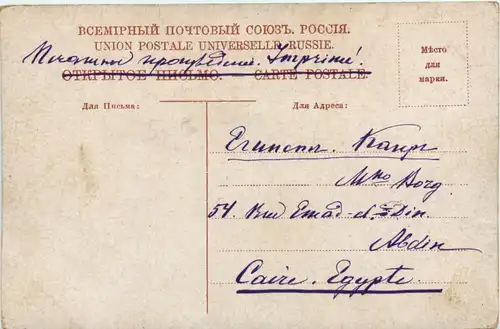 ВСЕМІРНЫЙ ПОЧТОВЫЙ СОЮЗЪ. РОССІЯ.
UNION POSTALE UNIVERSELLE. RUSSIE.
Imprimé!
ОТКРЫТОЕ ПИСЬМО. CARTE POSTALE
Мѣсто
для
марки.
Для Письма:
Для Адреса:
Египетъ. Каиръ
Borg
54. Rue Emad-el-Din
Abdin
Caire. Egypte.